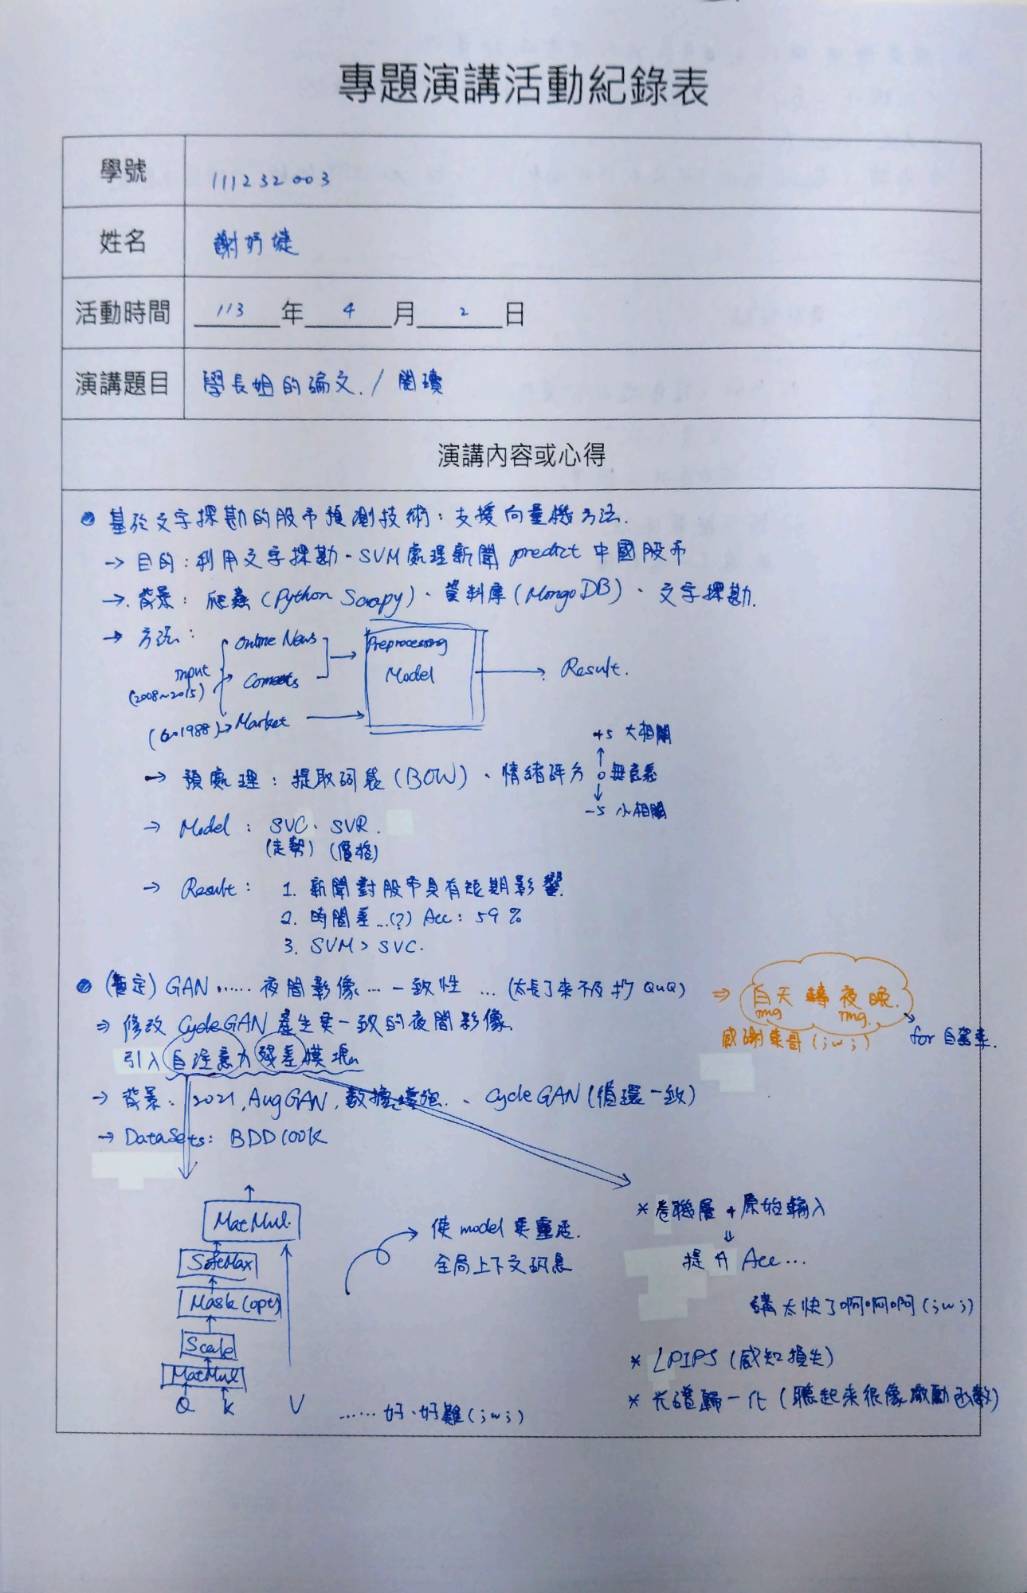 專題演講活動紀錄表
學號 111232003
姓名 謝妤
活動時間 113 年 4 月 2 日
演講題目 學長姐的論文 / 閱讀
演講內容或心得
基於文字探勘的股市預測技術:支援向量機方法.
→ 目的:利用文字探勘、SVM處理新聞 predict 中國股市
→ 背景:爬蟲(Python Scrapy)、資料庫(MongoDB)、文字探勘.
→ 方法:
input
(2008~2015)
Online News
Coments
1988) → Market
Preprocessing
Model
→ Result.
→ 預處理:提取詞袋(BOW)、情緒評分
+5 大相關
0 無意義
-5 小相關
→ Model : SVC、SVR.
(走勢) (價格)
→ Result : 1. 新聞對股市具有短期影響.
2. 時間差...(?) Acc: 59%
3. SVM > SVC.
(暫定) GAN ...... 夜間影像 ... 一致性 ... (太長了來不及打 QuQ)
⇒ 白天 轉 夜晚.
img img.
感謝 哥(;w;)
for 自駕車.
⇒ 修改 CycleGAN 產生更一致的夜間影像.
引入自注意力殘差模塊
→ 背景、2021, AugGAN, 數據 、CycleGAN (循環一致)
→ DataSets: BDD100K
MatMul.
SoftMax
Mask(opt)
Scale
MatMul
Q K V
使 model 更重視
全局上下文訊息
* 卷積層 + 原始輸入
⇓
提升 Acc...
講太快了啊啊啊(;w;)
* LPIPS (感知損失)
* 光譜歸一化 (聽起來很像激勵函數)
...... 好、好難(;w;)